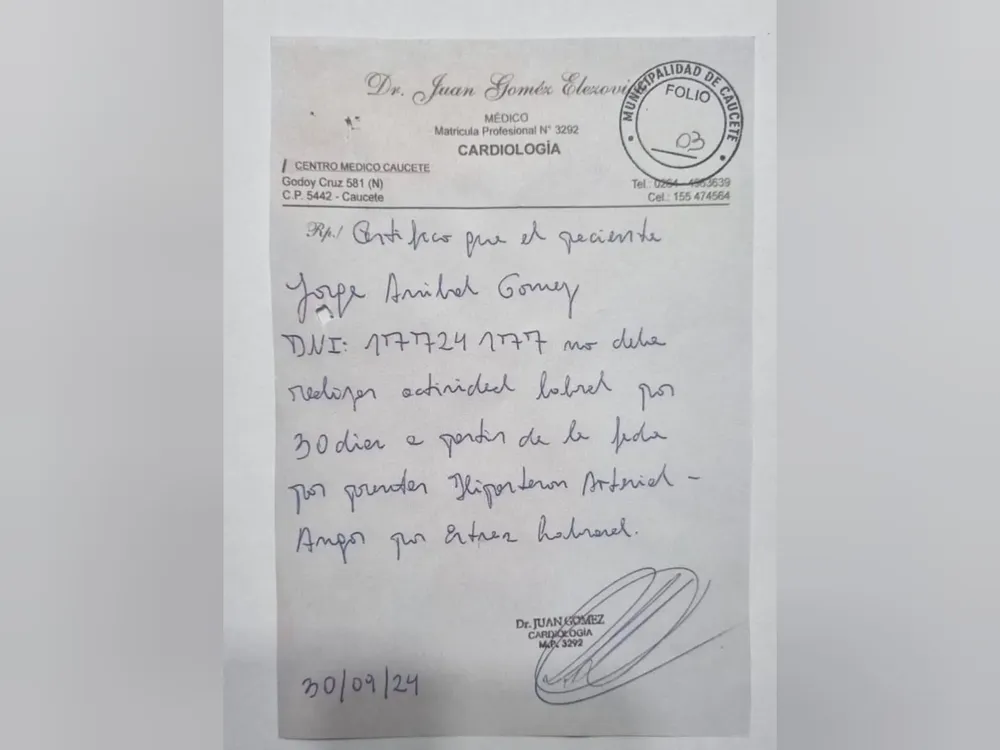 Dr. Juan Goméz Elezovi
MÉDICO
Matricula Profesional N° 3292
CARDIOLOGÍA
MUNICIPALIDAD DE CAUCETE
FOLIO
03
CENTRO MEDICO CAUCETE
Godoy Cruz 581 (N)
C.P. 5442 - Caucete
Tel.: 0264 - 4963639
Cel.: 155 474564
Rp./ Certifico que el paciente
Jorge Anibal Gomez
DNI: no debe
realizar actividad laboral por
30 dias a partir de la fecha
por presentar Hipertension Arterial -
Angor por Estrez Laboral.
Dr. JUAN GOMEZ
CARDIOLOGÍA
M.P. 3292
30/09/24